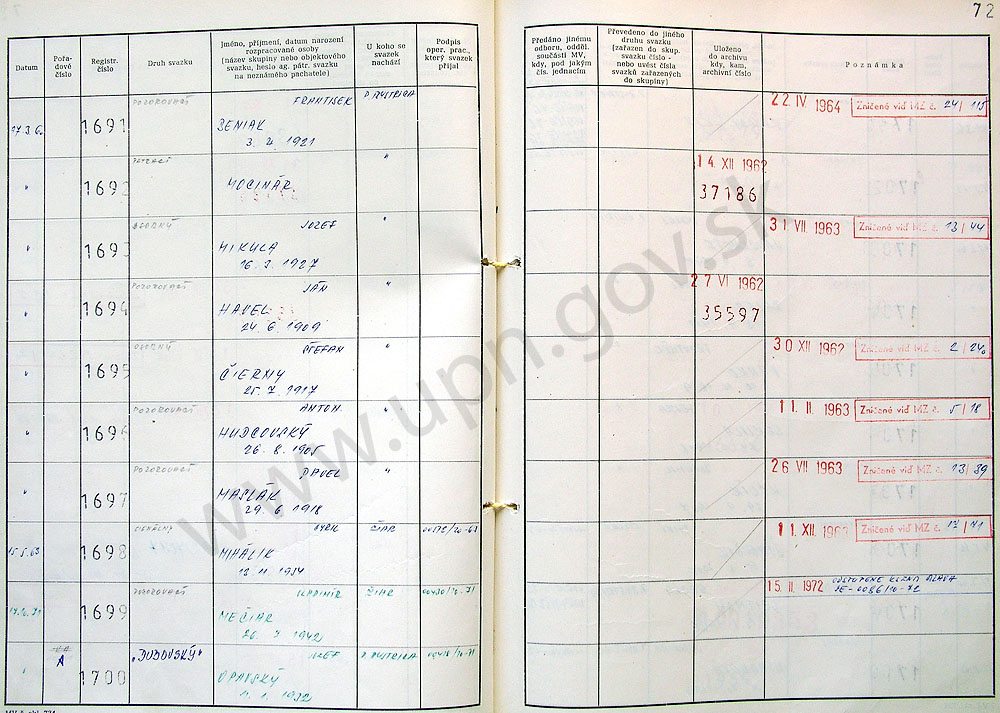 72
Datum
Pořa-
dové
číslo
Registr.
číslo
Druh svazku
Jméno, příjmení, datum narození
rozpracované osoby
(název skupiny nebo objektového
svazku, heslo ag. pátr. svazku
na neznámého pachatele)
U koho se
svazek
nachází
Podpis
oper. prac.,
který svazek
přijal
Předáno jinému
odboru, odděl.
součásti MV,
kdy, pod jakým
čís. jednacím
Převedeno do jiného
druhu svazku
(zařazen do skup.
svazku číslo -
nebo uvést čísla
svazků zařazených
do skupiny)
Uloženo
do archivu
kdy, kam,
archivní číslo
Poznámka
1691
POZOROVACÍ
FRANTIŠEK
BENIAK
3. 4. 1921
22 IV 1964
Zničené viď MZ č. 24/115
"
MOCINÁR
"
14. XII 1962
37186
"
OSOBNÝ
JOZEF
MIKULA
16. 3. 1927
"
31. VII. 1963
Zničené viď MZ č. 13/44
"
1694
POZOROVACÍ
JÁN
HAVEL
24. 6. 1909
"
27 VI 1962
35597
"
1695
OSOBNÝ
ŠTEFAN
ČIERNY
25. 7. 1917
"
30 XII 1962
Zničené viď MZ č. 2/240
"
POZOROVACÍ
ANTON
HUDCOVSKÝ
26. 8. 1905
"
11. II. 1963
Zničené viď MZ č. 5/18
"
1697
POZOROVACÍ
PAVEL
MASLÁK
29. 6. 1918
"
26 VII 1963
Zničené viď MZ č. 13/39
15.5.63
1698
SIGNÁLNY
CYRIL
MIHÁLIK
ČIAR
11. XII.
Zničené viď MZ č. 17/71
1699
POZOROVACÍ
VLADIMÍR
MEČIAR
26. 7. 1942
ČIAR
15. II. 1972
A
1700
"DUBOVSKÝ"
JOZEF
OPAVSKÝ
www.upn.gov.sk